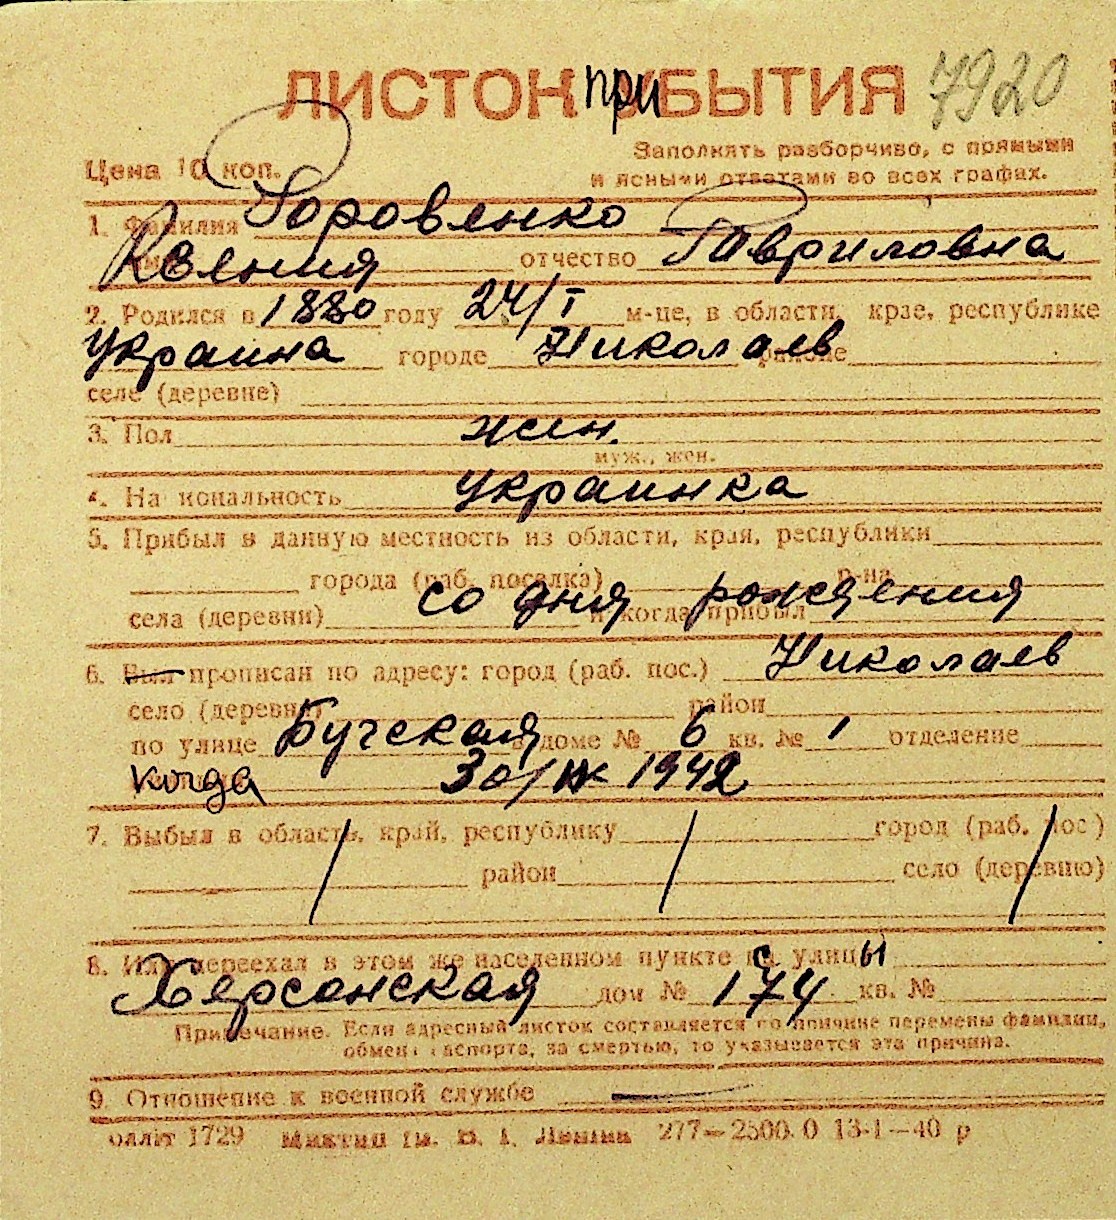 ЛИСТОК при УБЫТИЯ 7920
Цена 10 коп. Заполнять разборчиво, с прямыми
и ясными ответами во всех графах.
1. Фамилия Боровенко
Ксения отчество Гавриловна
2. Родился в 1880 году 24/I м-це, в области, крае, республике
Украина городе Николаев районе
селе (деревне)
3. Пол жен.
муж., жен.
4. Национальность украинка
5. Прибыл в данную местность из области, края, республики
города (раб. поселка) р-на
со дня рождения
села (деревни) и когда прибыл
6. Был прописан по адресу: город (раб. пос.) Николаев
село (деревня) район
по улице Бугская в доме № 6 кв. № 1 отделение
когда 30/IX 1942
7. Выбыл в область, край, республику город (раб. пос)
район село (деревню)
8. Или переехал в этом же населенном пункте с улицы
Херсонская дом № 174 кв. №
Примечание. Если адресный листок составляется по причине перемены фамилии,
обмена паспорта, за смертью, то указывается эта причина.
9. Отношение к военной службе —
1729 им. В. И. Ленина 277—2500.0 13-I—40 р